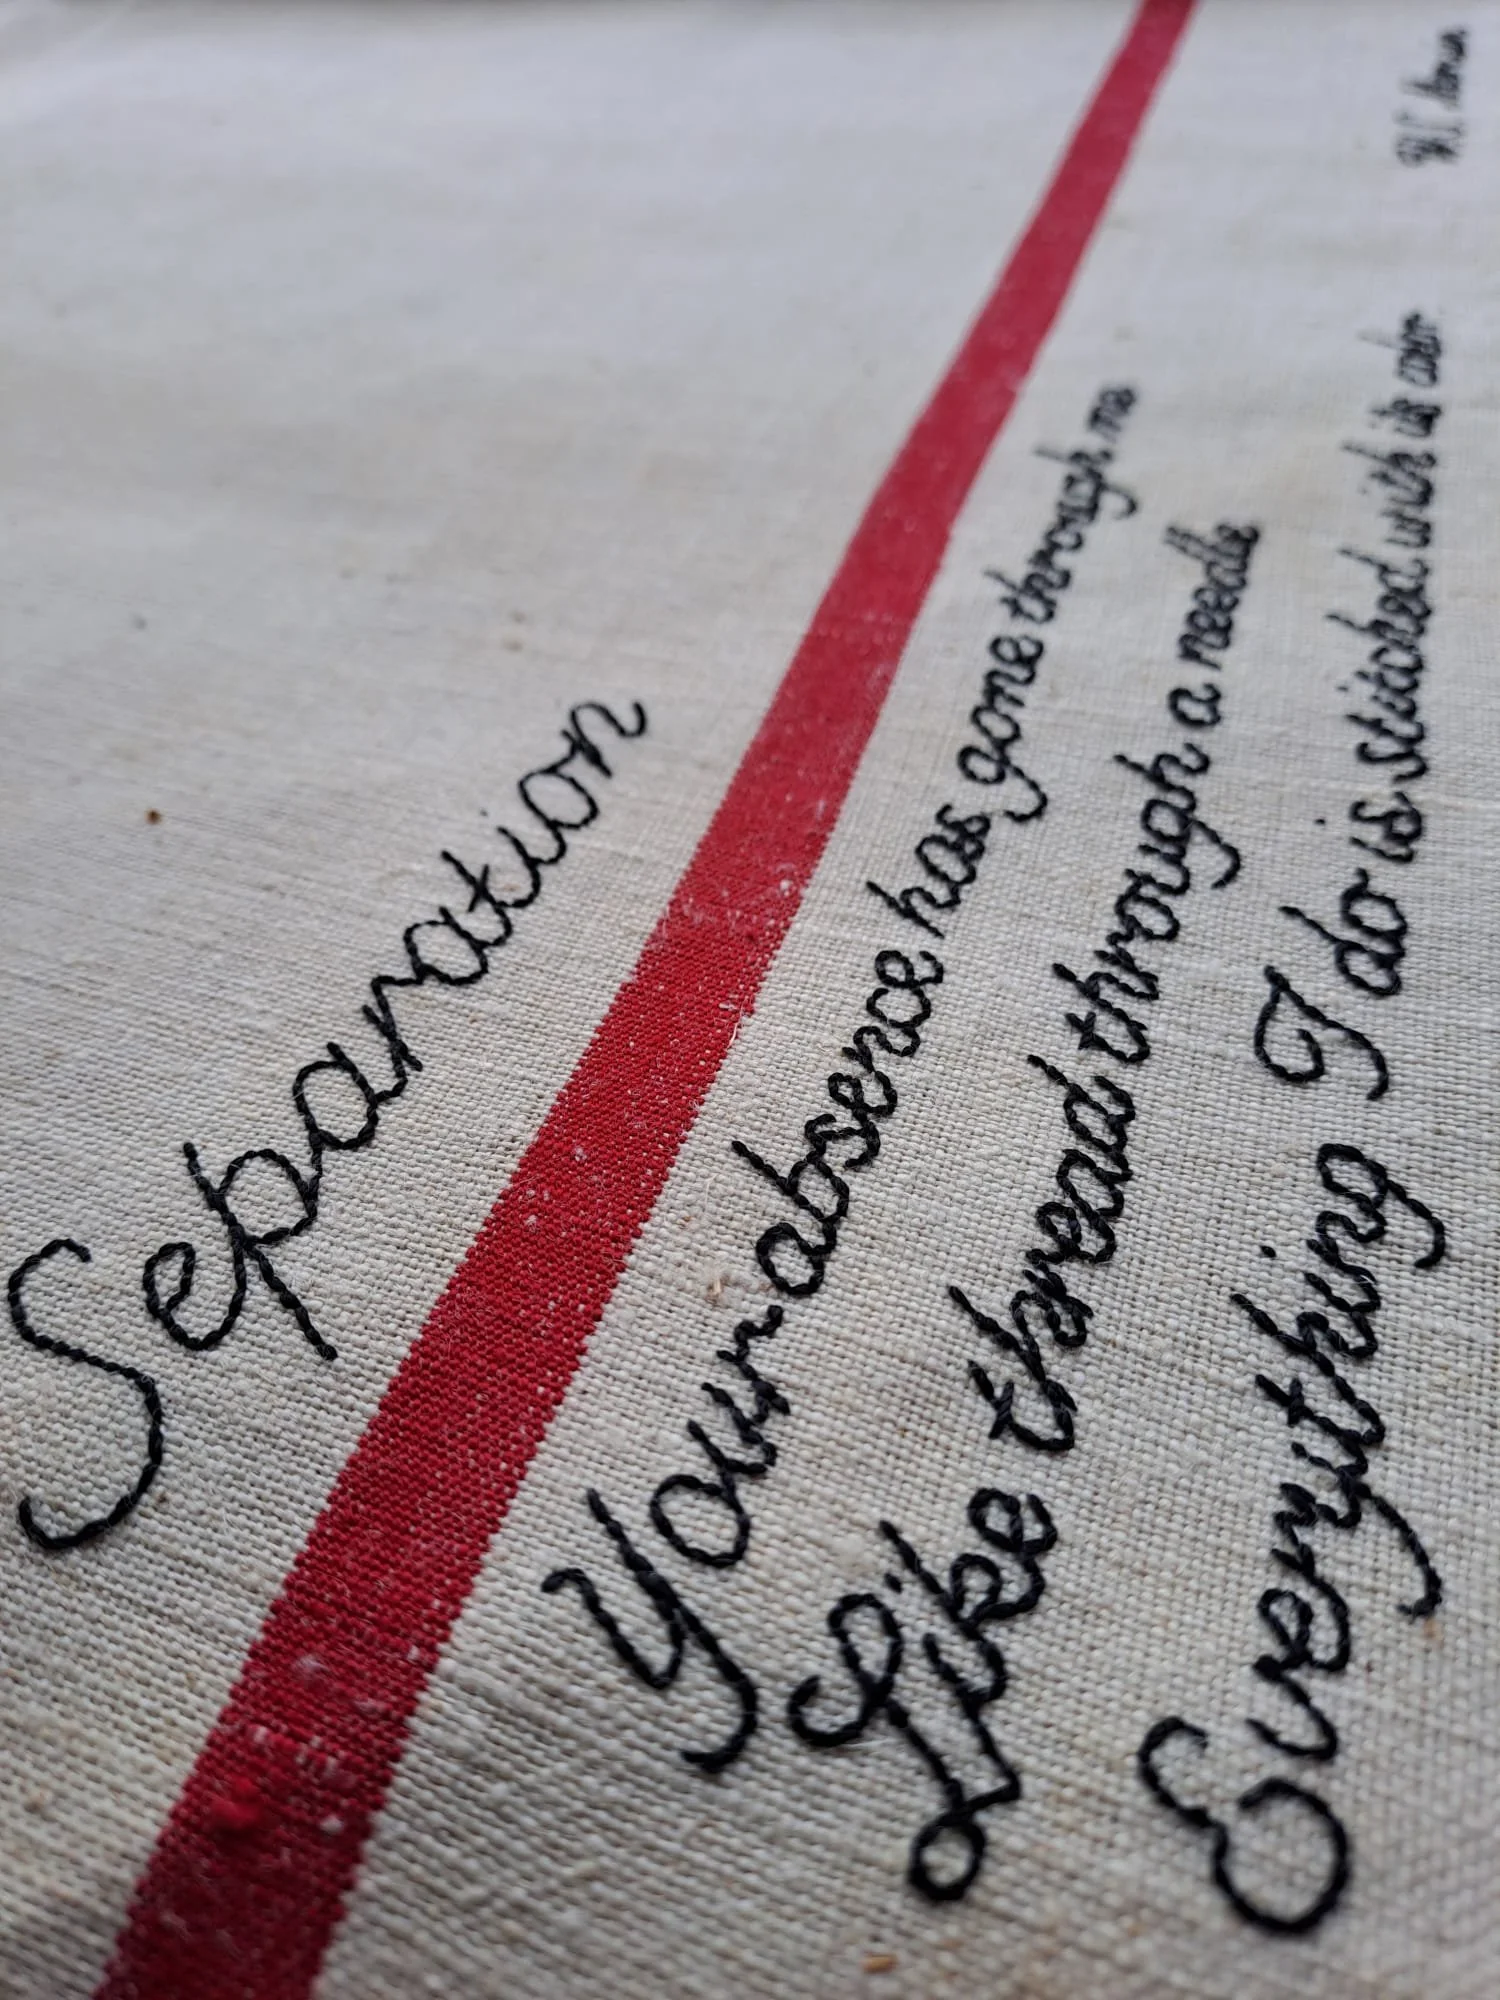 Separation
Your absence has gone through me
Like thread through a needle
Everything I do is stitched with its color.
W.S. Merwin